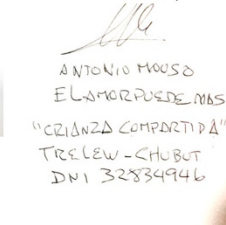 ANTONIO MOUSO
EL AMOR PUEDE MAS
"CRIANZA COMPARTIDA"
TRELEW - CHUBUT
DNI 32834946